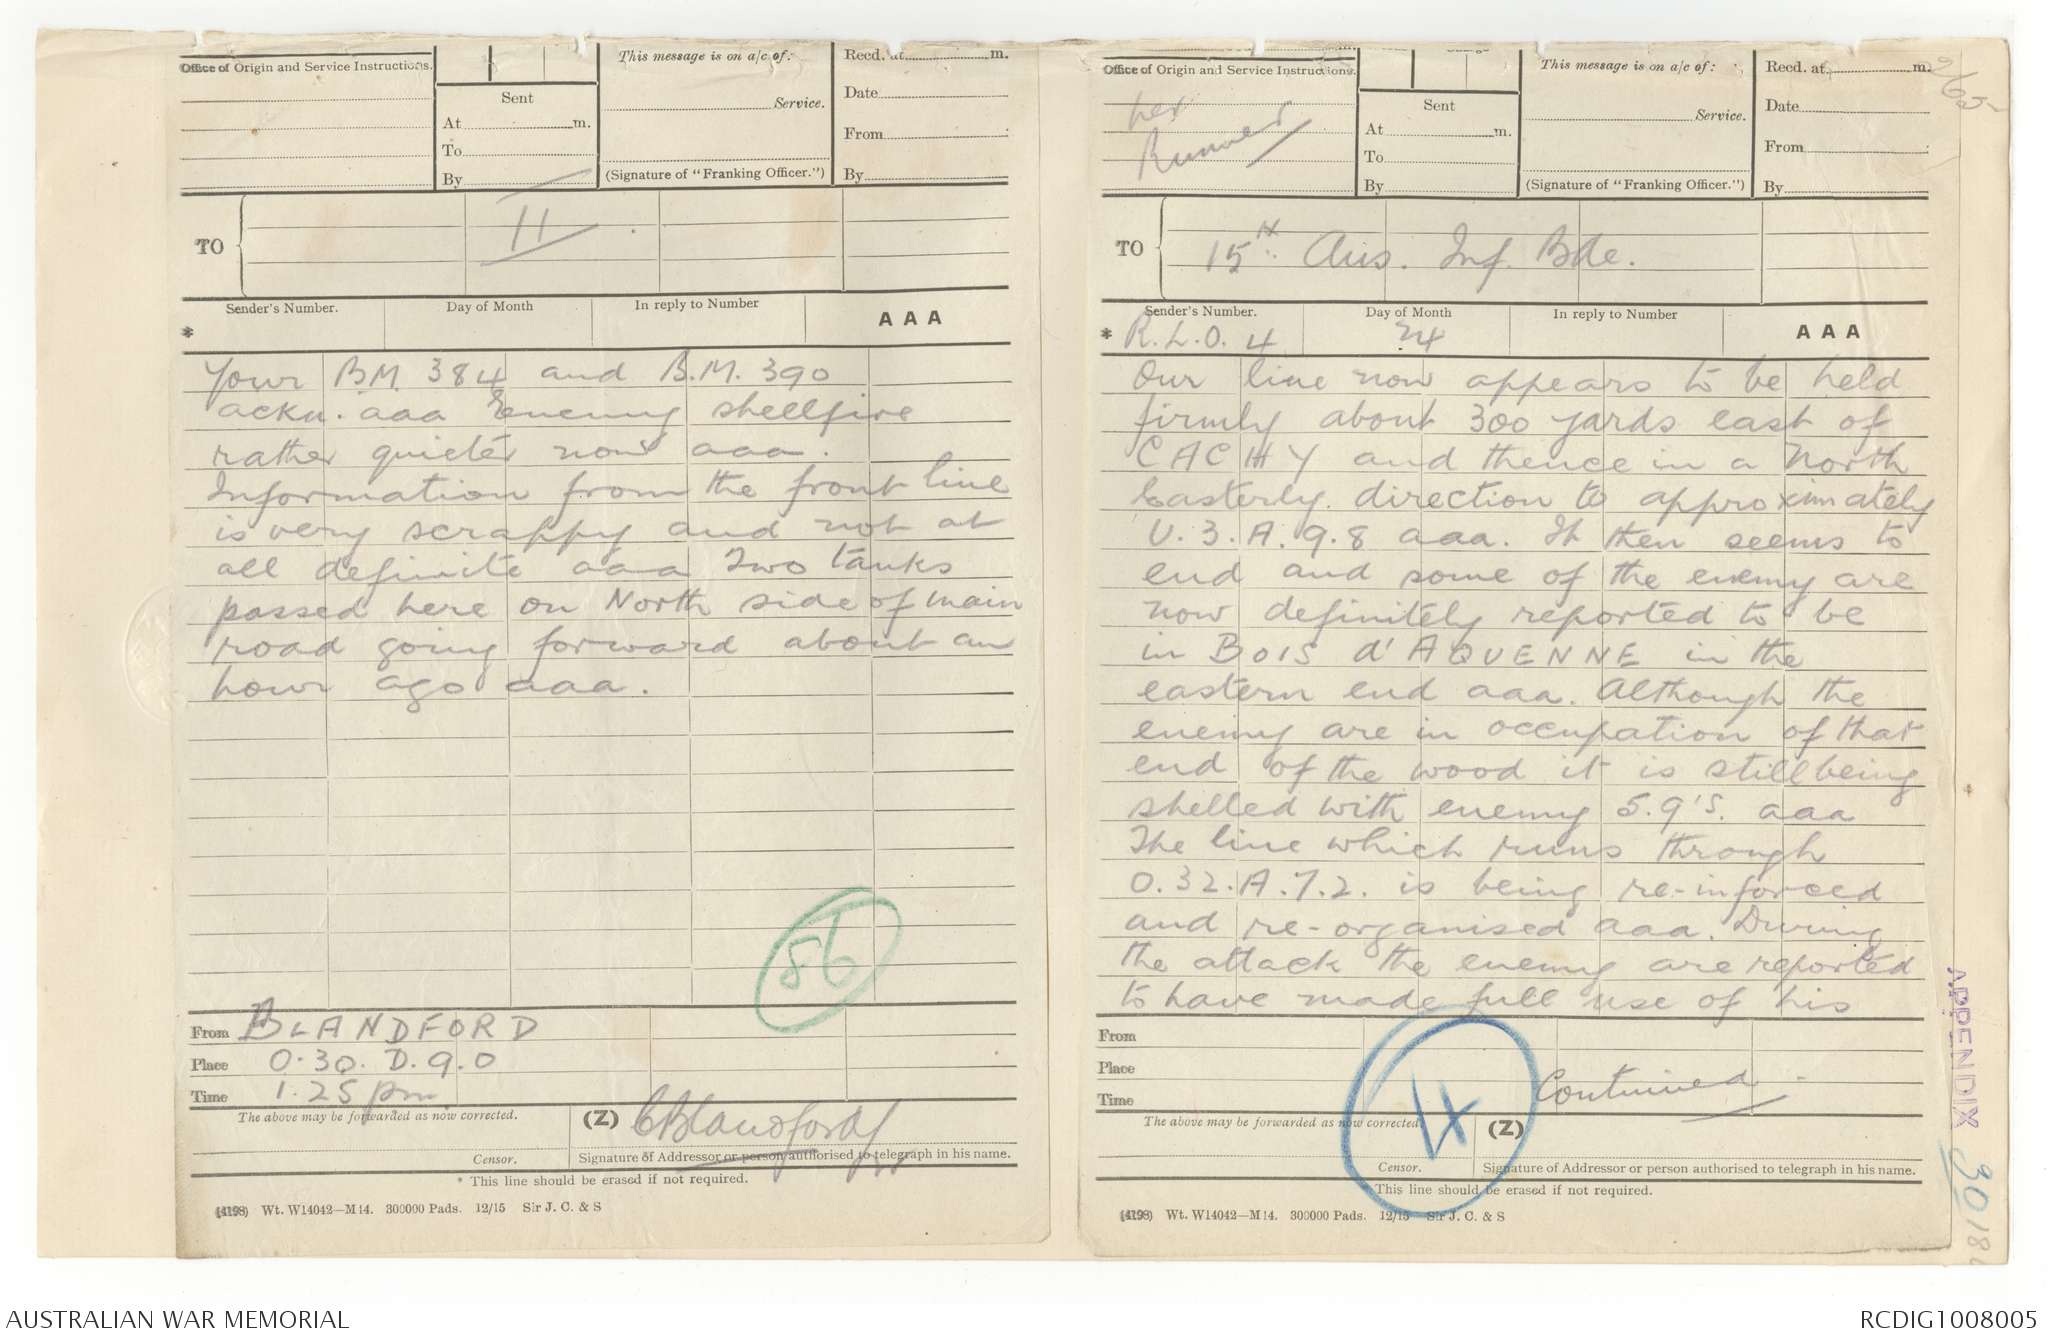 Office of Origin and Service Instructions.
Sent
At m.
To
By
This message is on a/c of:
Service.
(Signature of "Franking Officer.")
Recd. at m.
Date
From
By
TO
11
Sender's Number.
Day of Month
In reply to Number
AAA
*
Your BM 384 and B.M. 390
ackn. aaa Enemy shellfire
rather quieter now aaa.
Information from the front line
is very scrappy and not at
all definite aaa Two tanks
passed here on North side of main
road going forward about an
hour ago aaa.
86
From BLANDFORD
Place O.30. D.9.0
Time 1.25 pm
The above may be forwarded as now corrected.
(Z) CBlandford
Censor.
Signature of Addressor or person authorised to telegraph in his name.
* This line should be erased if not required.
(4198) Wt. W14042—M14. 300000 Pads. 12/15 Sir J. C. & S
Office of Origin and Service Instructions.
per
Runner
Sent
At m.
To
By
This message is on a/c of:
Service.
(Signature of "Franking Officer.")
Recd. at m.
Date
From
By
TO
15th Aus. Inf. Bde.
Sender's Number.
Day of Month
In reply to Number
AAA
* R.L.O. 4 24
Our line now appears to be held
firmly about 300 yards east of
CACHY and thence in a North
Easterly direction to approximately
U.3.A.9.8 aaa. It then seems to
end and some of the enemy are
now definitely reported to be
in BOIS d'AQUENNE in the
eastern end aaa. Although the
enemy are in occupation of that
end of the wood it is still being
shelled with enemy 5.9's. aaa
The line which runs through
O.32.A.7.2. is being re-inforced
and re-organised aaa. During
the attack the enemy are reported
to have made full use of his
From
Place
Time
Continued
The above may be forwarded as now corrected.
(Z)
Censor.
Signature of Addressor or person authorised to telegraph in his name.
This line should be erased if not required.
(4198) Wt. W14042—M14. 300000 Pads. 12/15 Sir J. C. & S
APPENDIX 30
AUSTRALIAN WAR MEMORIAL
RCDIG1008005